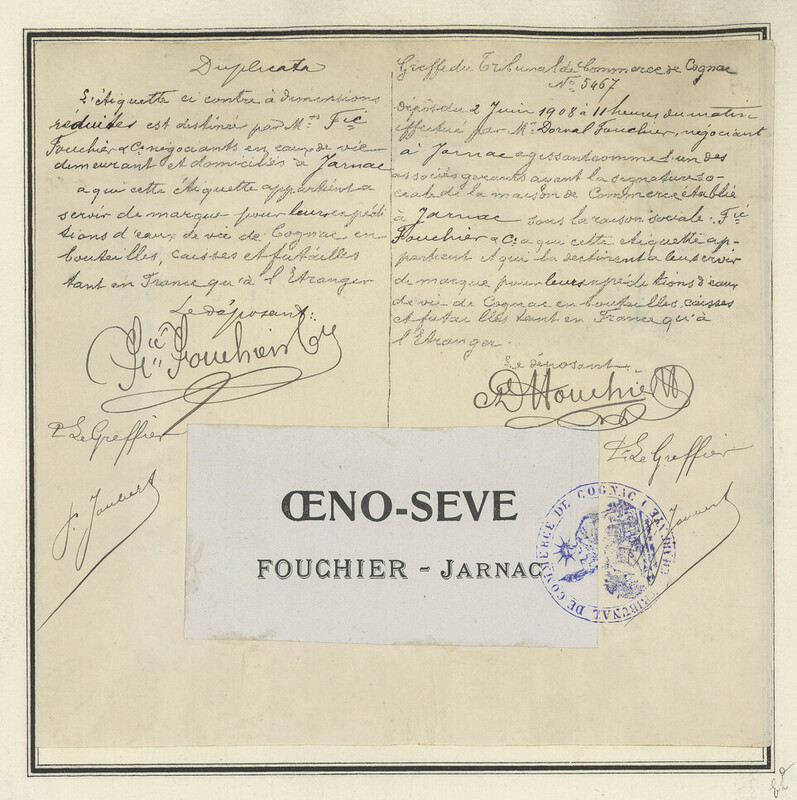 Duplicata
L'étiquette ci contre à dimensions
réduites est destinée par Mrs Fic
Fouchier & Co négociants en eaux de vie
demeurant et domiciliés à Jarnac
a qui cette étiquette appartient a
servir de marque pour leurs expédi
tions d'eaux de vie de Cognac en
bouteilles, caisses et futailles
tant en France qu'à l'Etranger
Le déposant:
Fic Fouchier & Co
Pr Le Greffier
J. Jaubert
Greffe du Tribunal de Commerce de Cognac
No 5467
Dépôt du 2 Juin 1908 à 11 heures du matin
effectué par Mr Dorval Fouchier, négociant
à Jarnac agissant comme l'un des
associés gerants ayant la signature so-
ciale de la maison de Commerce établie
à Jarnac sous la raison sociale: Fic
Fouchier & Co a qui cette étiquette ap-
partient et qui la destinent a leur servir
de marque pour leurs expéditions d'eaux
de vie de Cognac en bouteilles, caisses
et futailles tant en France qu'à
l'Etranger.
Le déposant
Fouchier
Pr Le Greffier
Jaubert
ŒNO-SEVE
FOUCHIER - JARNAC
TRIBUNAL DE COMMERCE DE COGNAC (CHARENTE)